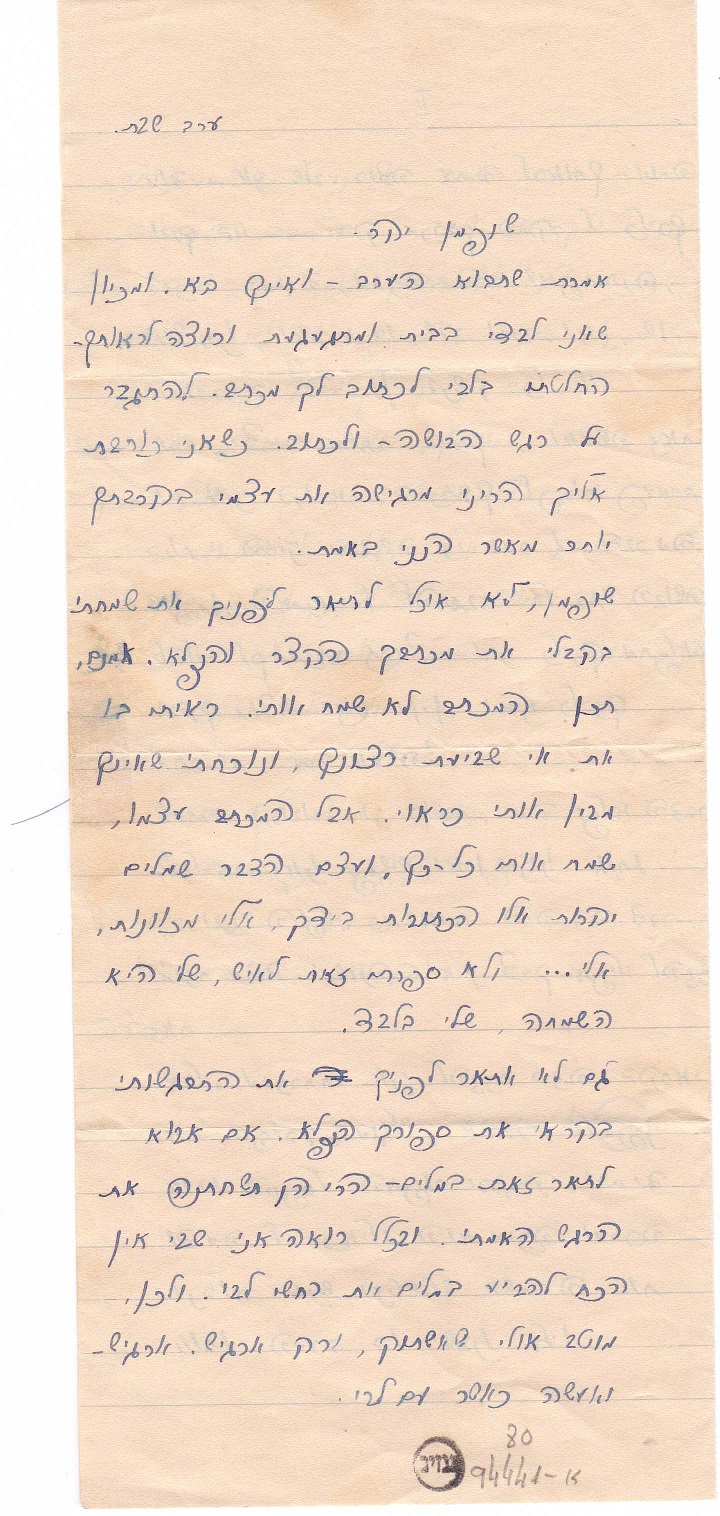 ערב שבת.
שופמן יקר.
אמרת שתבוא הערב – ואינך בא. ומכיון
שאני לבדי בבית ומתגעגעת ורוצה לראותך –
החלטתי בלבי לכתוב לך מכתב. להתגבר
על רגש הבושה – ולכתוב. כשאני כותבת
אליך הריני מרגישה את עצמי בקרבתך
יותר מאשר הנני באמת.
שופמן, לא אוכל לתאר לפניך את שמחתי
בקבלי את מכתבך הקצר והנפלא. אמנם,
תכן המכתב לא שמח אותי. ראיתי בו
את אי שביעת רצונך, ונוכחתי שאינך
מבין אותי כראוי. אבל המכתב עצמו,
שמח אותי כל-כך, ועצם הדבר שמלים
יקרות אלו הכתובות בידך, אלי מכוונות,
אלי... ולא ספרתי זאת לאיש, שלי היא
השמחה, שלי בלבד.
גם לא אתאר לפניך את התרגשותי
בקראי את ספורך הנפלא. אם אבוא
לתאר זאת במלים – הרי הן תשחתנה את
הרגש האמתי. ובכלל רואה אני שבי אין
הכח להביע במלים את רחשי לבי. ולכן,
מוטב אולי שאשתוק, ורק ארגיש. ארגיש –
ואעשה כאשר עם לבי.
80
94441-א
גנזים